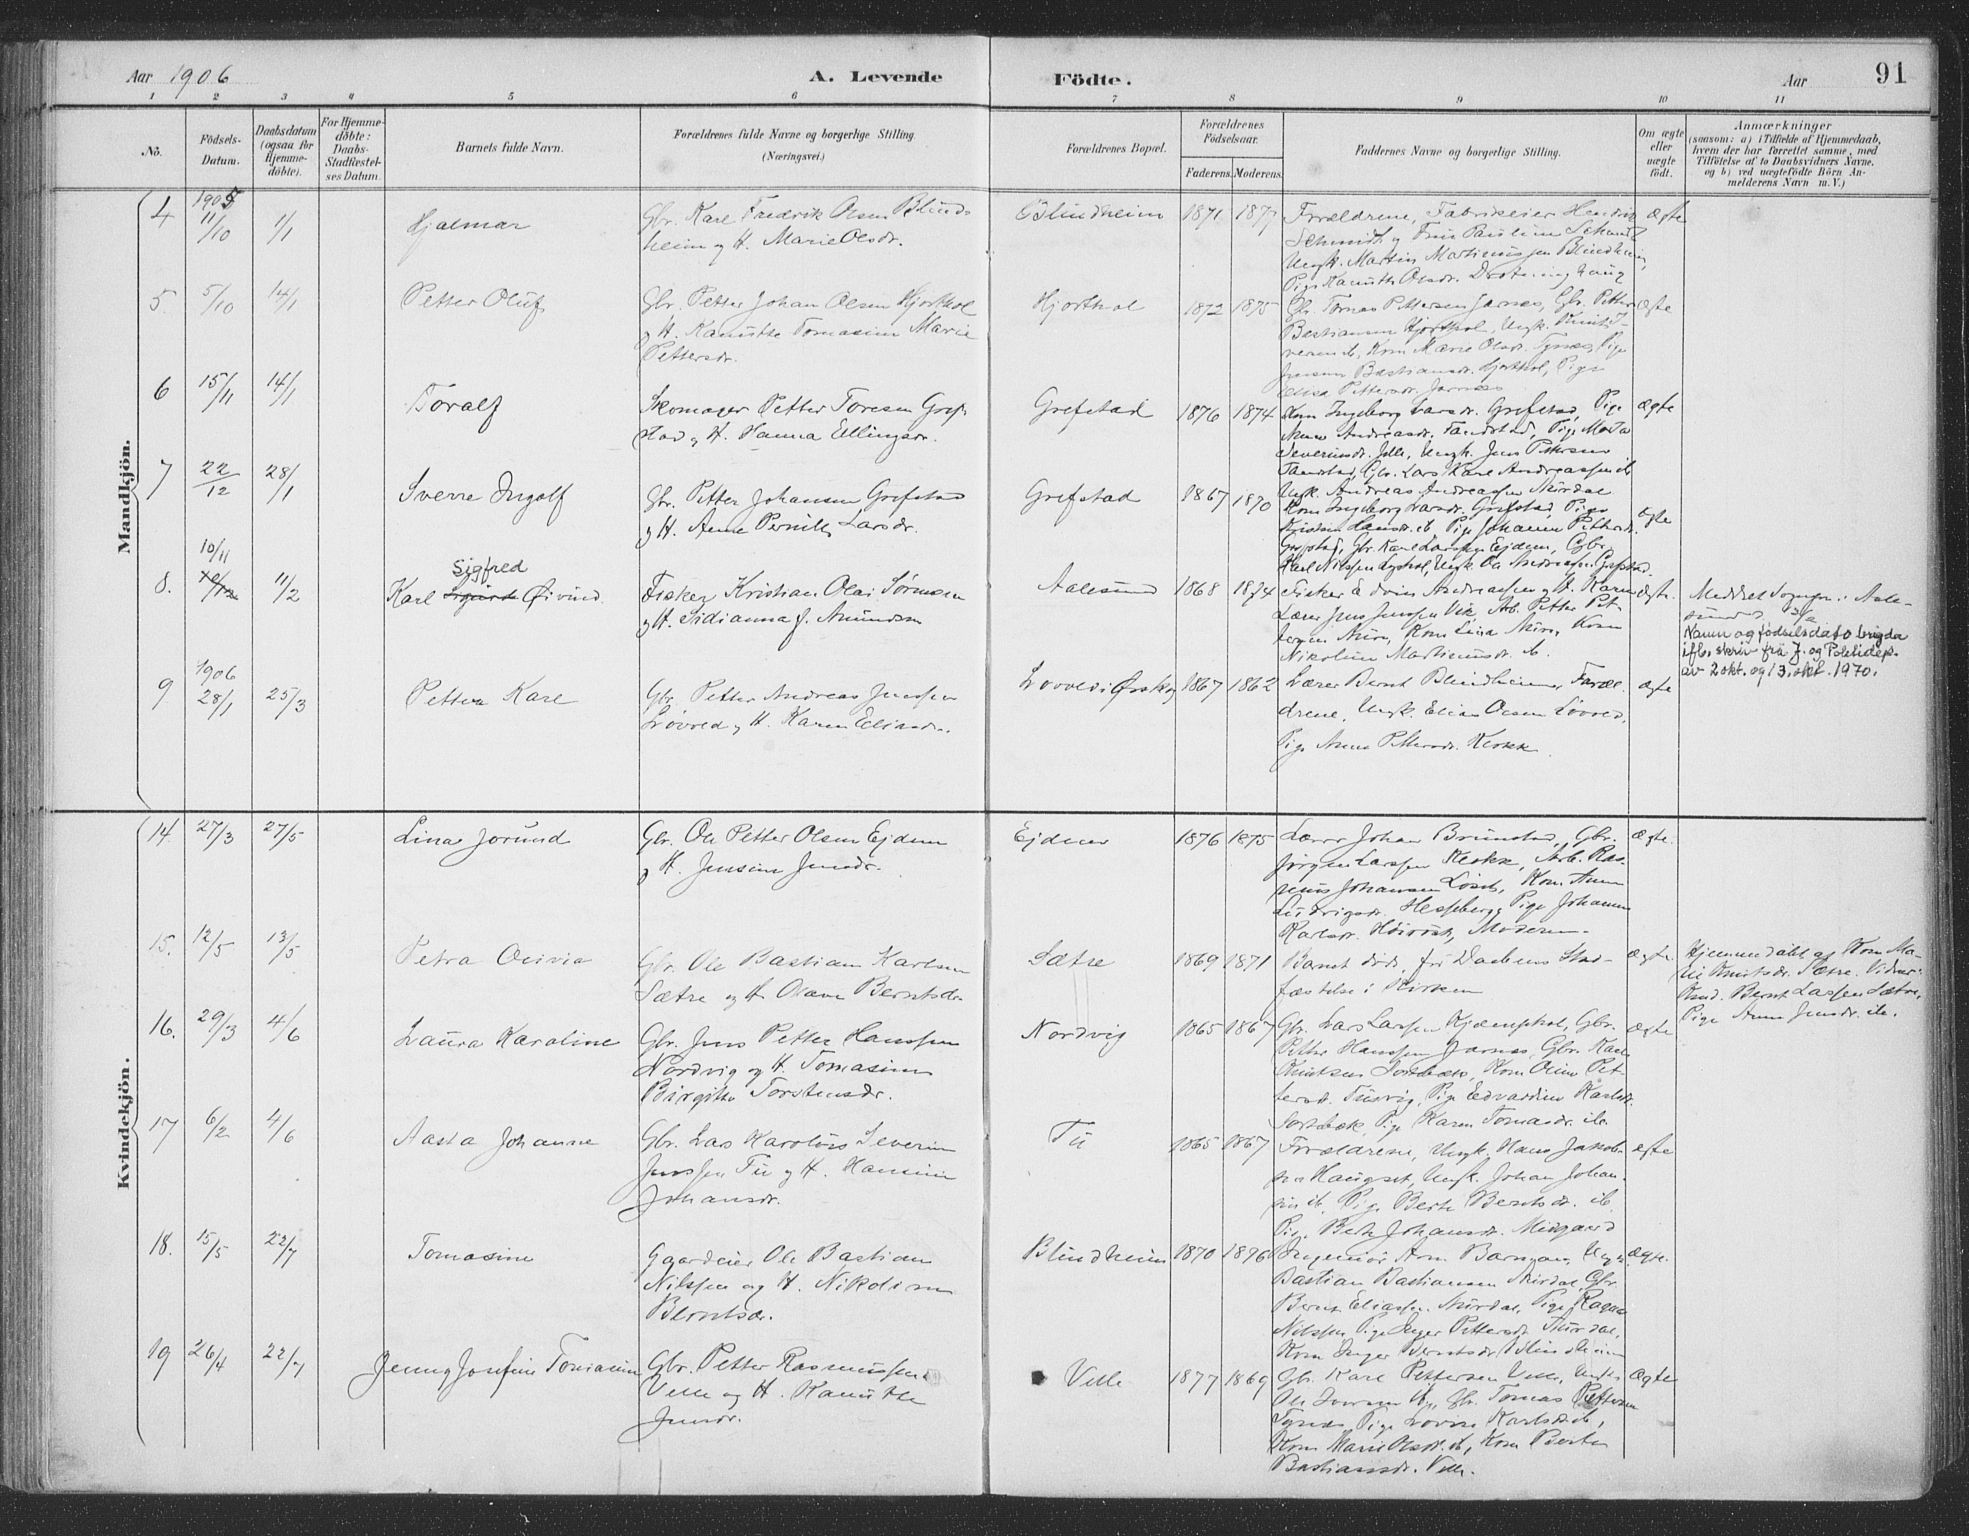 Aar 1906
A. Levende
Födte.
Aar
91
1 2 3 4 5 6 7 8 9 10 11
No.
Födsels-
Datum.
Daabsdatum
(ogsaa for
Hjemme-
döbte).
For Hjemme-
döbte:
Daabs-
Stadfæstel-
ses Datum.
Barnets fulde Navn.
Forældrenes fulde Navne og borgerlige Stilling.
(Næringsvei.)
Forældrenes Bopæl.
Forældrenes
Födselsaar.
Faderens. Moderens.
Faddernes Navne og borgerlige Stilling.
Om ægte
eller
uægte
födt.
Anmærkninger
(saasom: a) i Tilfælde af Hjemmedaab,
hvem der har forrettet samme, med
Tilföielse af to Daabsvidners Navne,
og b) ved uægtefödte Börn An-
melderens Navn m. V.)
Mandkjön.
4
1905
11/10
1/1
Hjalmar
Gbr. Karl Fredrik Olsen Blind-
heim og H. Marie Olsdr.
Blindheim
1871
1877
Forældrene, Fabrikeier Henrik
Schmidt og Frue Pauline Schmidt
Ungk. Martin Martinussen Blindheim,
Pige Kanutte Olsdr.
ægte
5.
5/10
14/1
Petter Oluf
Gbr. Petter Johan Olsen Hjorthol
og H. Kanutte Tomasine Marie
Pettersdr.
Hjorthol
1872
1875
Gbr. Tomas Pettersen Jarnes, Gbr. Petter
Bastiansen Hjorthol, Ungk. Knut I-
versen ib, Kone Marie Olsdr. Synes, Pige
Jensine Bastiansdr. Hjorthol, Pige
Elisa Pettersdr. Jarnes
ægte
6
15/11
14/1
Toralf
Skomager Petter Toresen Gref-
stad og H. Hanna Ellingsdr.
Grefstad
1876
1874
Kone Ingeborg Larsdr. Grefstad, Pige
Anne Andreasdr. Tandstad, Pige Marta
Severinsdr. Ungk. Jens Petersen
Tandstad, Gbr. Lars Karl Andreassen ib
Ungk. Andreas Andreassen
ægte
7
22/12
28/1
Sverre Ingolf
Gbr. Petter Johansen Grefstad
og H. Anne Pernille Larsdr.
Grefstad
1867
1870
Kone Ingeborg Larsdr. Grefstad, Pige
Kristine Hansdr. ib. Pige Johanne Pettersdr.
Grefstad, Gbr. Karl Larssen Ejdem, Gbr.
Karl Nilssen Ungk. Ole Andreassen Grefstad.
ægte
8.
10/11
10/12
11/2
Sigfred
Karl Sigurd Øivind.
Fisker Kristian Olai Sørensen
og H. Sidianna J. Amundsen
Aalesund
1868
1874
Fisker Edvin Andreassen og H. Karen
Lærer Jens Jenssen Vik, Arb. Petter Pet-
tersen Kone Lina Kone
Nikoline Martinusdr. ib.
ægte.
Meddelt Sognepr. i Aale-
sund
Namn og fødselsdato brigda
iflg. skriv frå J. og Politidep.
av 2 okt. og 13. okt. 1970.
9
1906
28/1
25/3
Petter Karl
Gbr. Petter Andreas Jenssen
Løvred og H. Karen Eliasdr.
Lovred i Ørskog
1867
1862
Lærer Bernt Blindheim, Foræl-
drene, Ungk. Elias Olsen Lovred,
Pige Anne Pettersdr. Klokk
ægte
Kvindekjön.
14.
27/3
27/5
Lina Jorund
Gbr. Ole Petter Olsen Ejdem
og H. Jensine Jensdr.
Ejdem
1876
1875
Lærer Johan Brunstad, Gbr.
Jørgen Larssen Klokk, Arb. Ras-
mus Johansen Løset, Kone Anne
Ludvigsdr. Hessberg, Pige Johanne
Karlsdr. Moderen.
ægte.
15.
12/5
13/5
Petra Olivia
Gbr. Ole Bastian Karlsen
Sætre og H. Olave Berntsdr.
Sætre
1869
1871
Barnet døde før Daabens Stad-
fæstelse i Kirken
ægte.
Hjemmedøbt af Kone Ma-
rie Knutsdr. Sætre. Vidner:
Bernt Larssen Sætre,
Pige Anne Jensdr. ib.
16.
29/3
4/6
Laura Karoline
Gbr. Jens Petter Hanssen
Nordvig og H. Tomasine
Birgitte Torstensdr.
Nordvig
1865
1867
Gbr. Lars Larssen Kjæmphol, Gbr.
Petter Hanssen Jarnes, Gbr. Karl
Knutsen Kone Oline Pet-
tersdr. Tusvig, Pige Edvardine Karlsdr.
Pige Karen Tomasdr. ib.
ægte
17
6/2
4/6
Aasta Johanne
Gbr. Lars Karolus Severin
Jenssen Tu og H. Hansine
Johansdr.
Tu
1865
1867
Forældrene, Ungk. Hans Jakob-
sen Haugset, Ungk. Johan Johan-
sen ib, Pige Berte Berntsdr. ib.
Pige Berte Johansdr. Midgaard
ægte
18.
15/5
22/7
Tomasine
Gaardeier Ole Bastian
Nilssen og H. Nikoline
Berntsdr.
Blindheim
1870
1876
Ingeniør Arn. Ungk.
Bastian Bastiansen Gbr.
Bernt Eliassen Pige Ragna
Nilssen, Pige Inger Pettersdr.
Kone Inger Berntsdr. Blindheim
ægte.
19
26/4
22/7
Jenny Josefine Tomasine
Gbr. Petter Rasmussen
Velle og H. Kanutte
Jensdr.
Velle
1877
1869
Gbr. Karl Pettersen Velle, Ungk.
Ole Iversen Gbr. Tomas Pettersen
Synes, Pige Lovise Karlsdr. ib,
Kone Marie Olsdr. ib, Kone Berte
Bastiansdr. Velle.
ægte